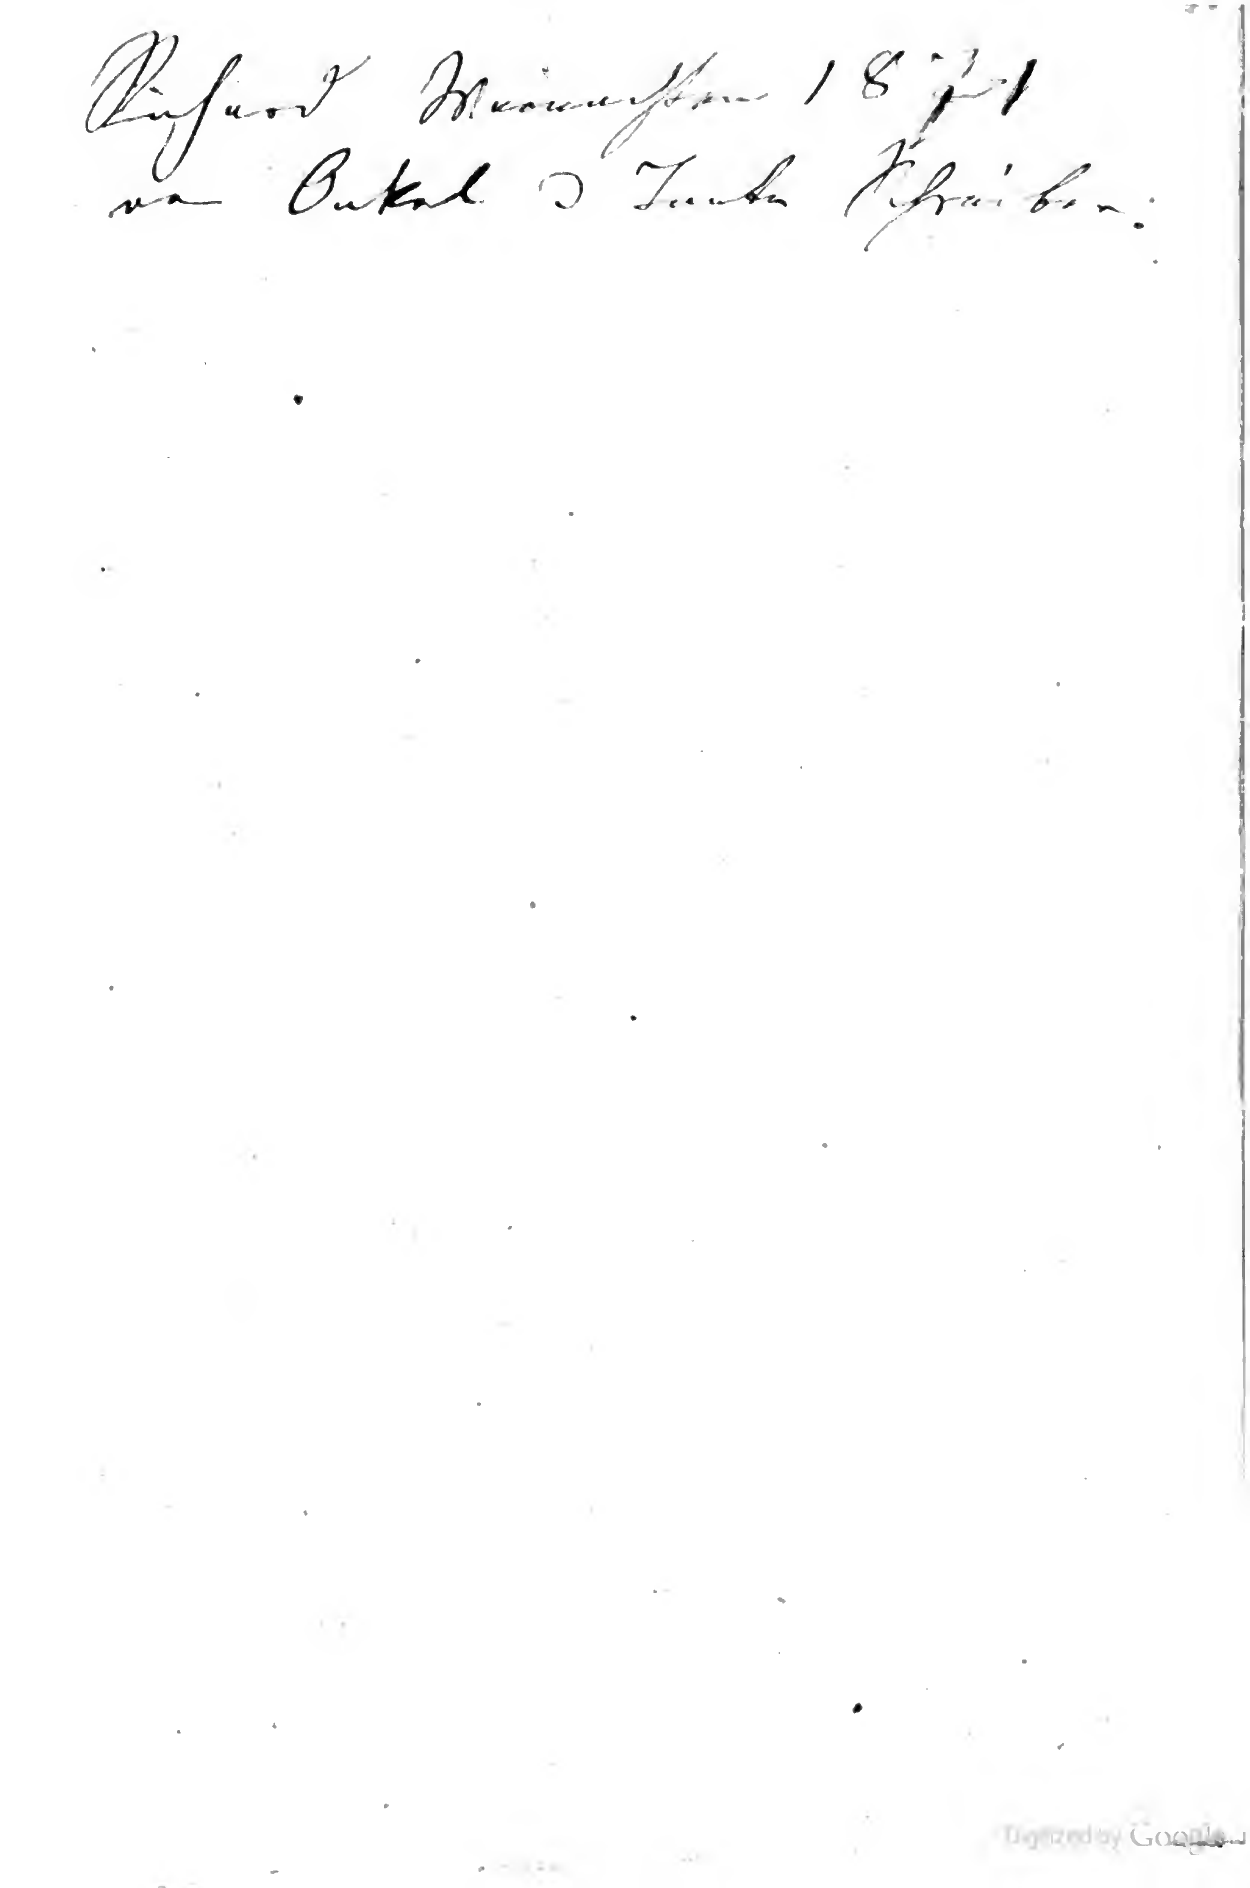 Richard Weinachten 1871
von Onkel & Tante Schreiber.
Digitized by Google